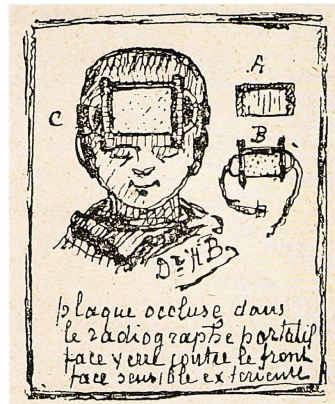 A
C
B
Dr HB.
plaque occluse dans
le radiographe portatif
face verre contre le front
face sensible exterieure